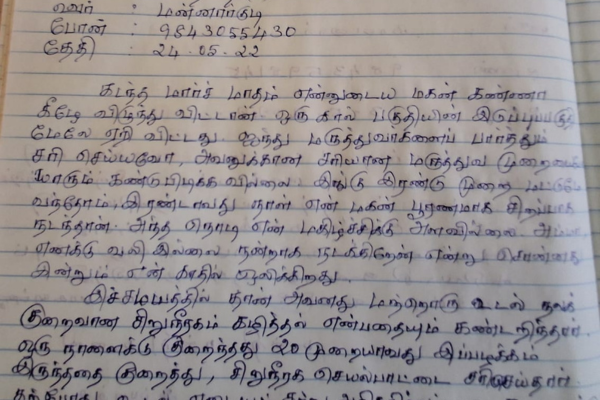 ஊர் : மன்னார்குடி
போன் : 9843055430
தேதி : 24.05.22
கடந்த மார்ச் மாதம் என்னுடைய மகன் கண்ணா
கீழே விழுந்து விட்டான். ஒரு கால் பகுதியின் இடுப்புப்பகுதி
மேலே ஏறி விட்டது. ஐந்து மருத்துவர்களைப் பார்த்தும்
சரி செய்யவோ, அவனுக்கான சரியான மருத்துவ முறையை
யாரும் கண்டுபிடிக்க வில்லை. இங்கு இரண்டு முறை மட்டுமே
வந்தோம். இரண்டாவது நாள் என் மகன் பூரணமாக சிறப்பாக
நடந்தான். அந்த நொடி என் மகிழ்ச்சிக்கு அளவில்லை. அம்மா
எனக்கு வலி இல்லை நன்றாக நடக்கிறேன் என்று சொன்னது
இன்றும் என் காதில் ஒலிக்கிறது.
இச்சமயத்தில் தான் அவனது மற்றொரு உடல் நலக்
குறைவான சிறுநீரகம் கழித்தல் என்பதையும் கண்டறிந்தார்.
ஒரு நாளைக்கு குறைந்தது 20 முறையாவது இப்பழக்கம்
இருந்ததை குறைத்து, சிறுநீரக செயல்பாட்டை சரிசெய்தார்.